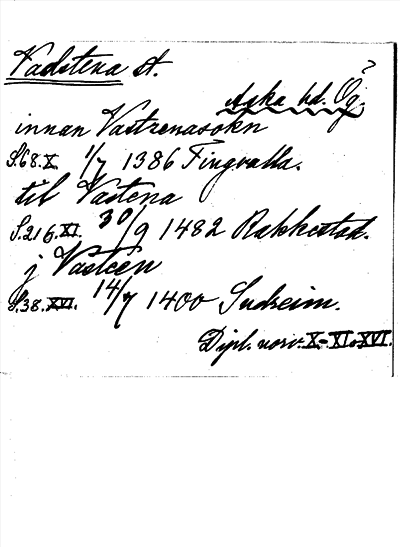 Vadstena st.
?
Aska hd. Ög.
innan Vastzenasokn
S.68.X. 1/7 1386 Tingvalla.
til Vastena
S.216.XI. 30/9 1482 Rakkestad.
j Vasteen
S.38.XVI. 14/7 1400 Sudreim.
Dipl. norv. X-XI.XVI.